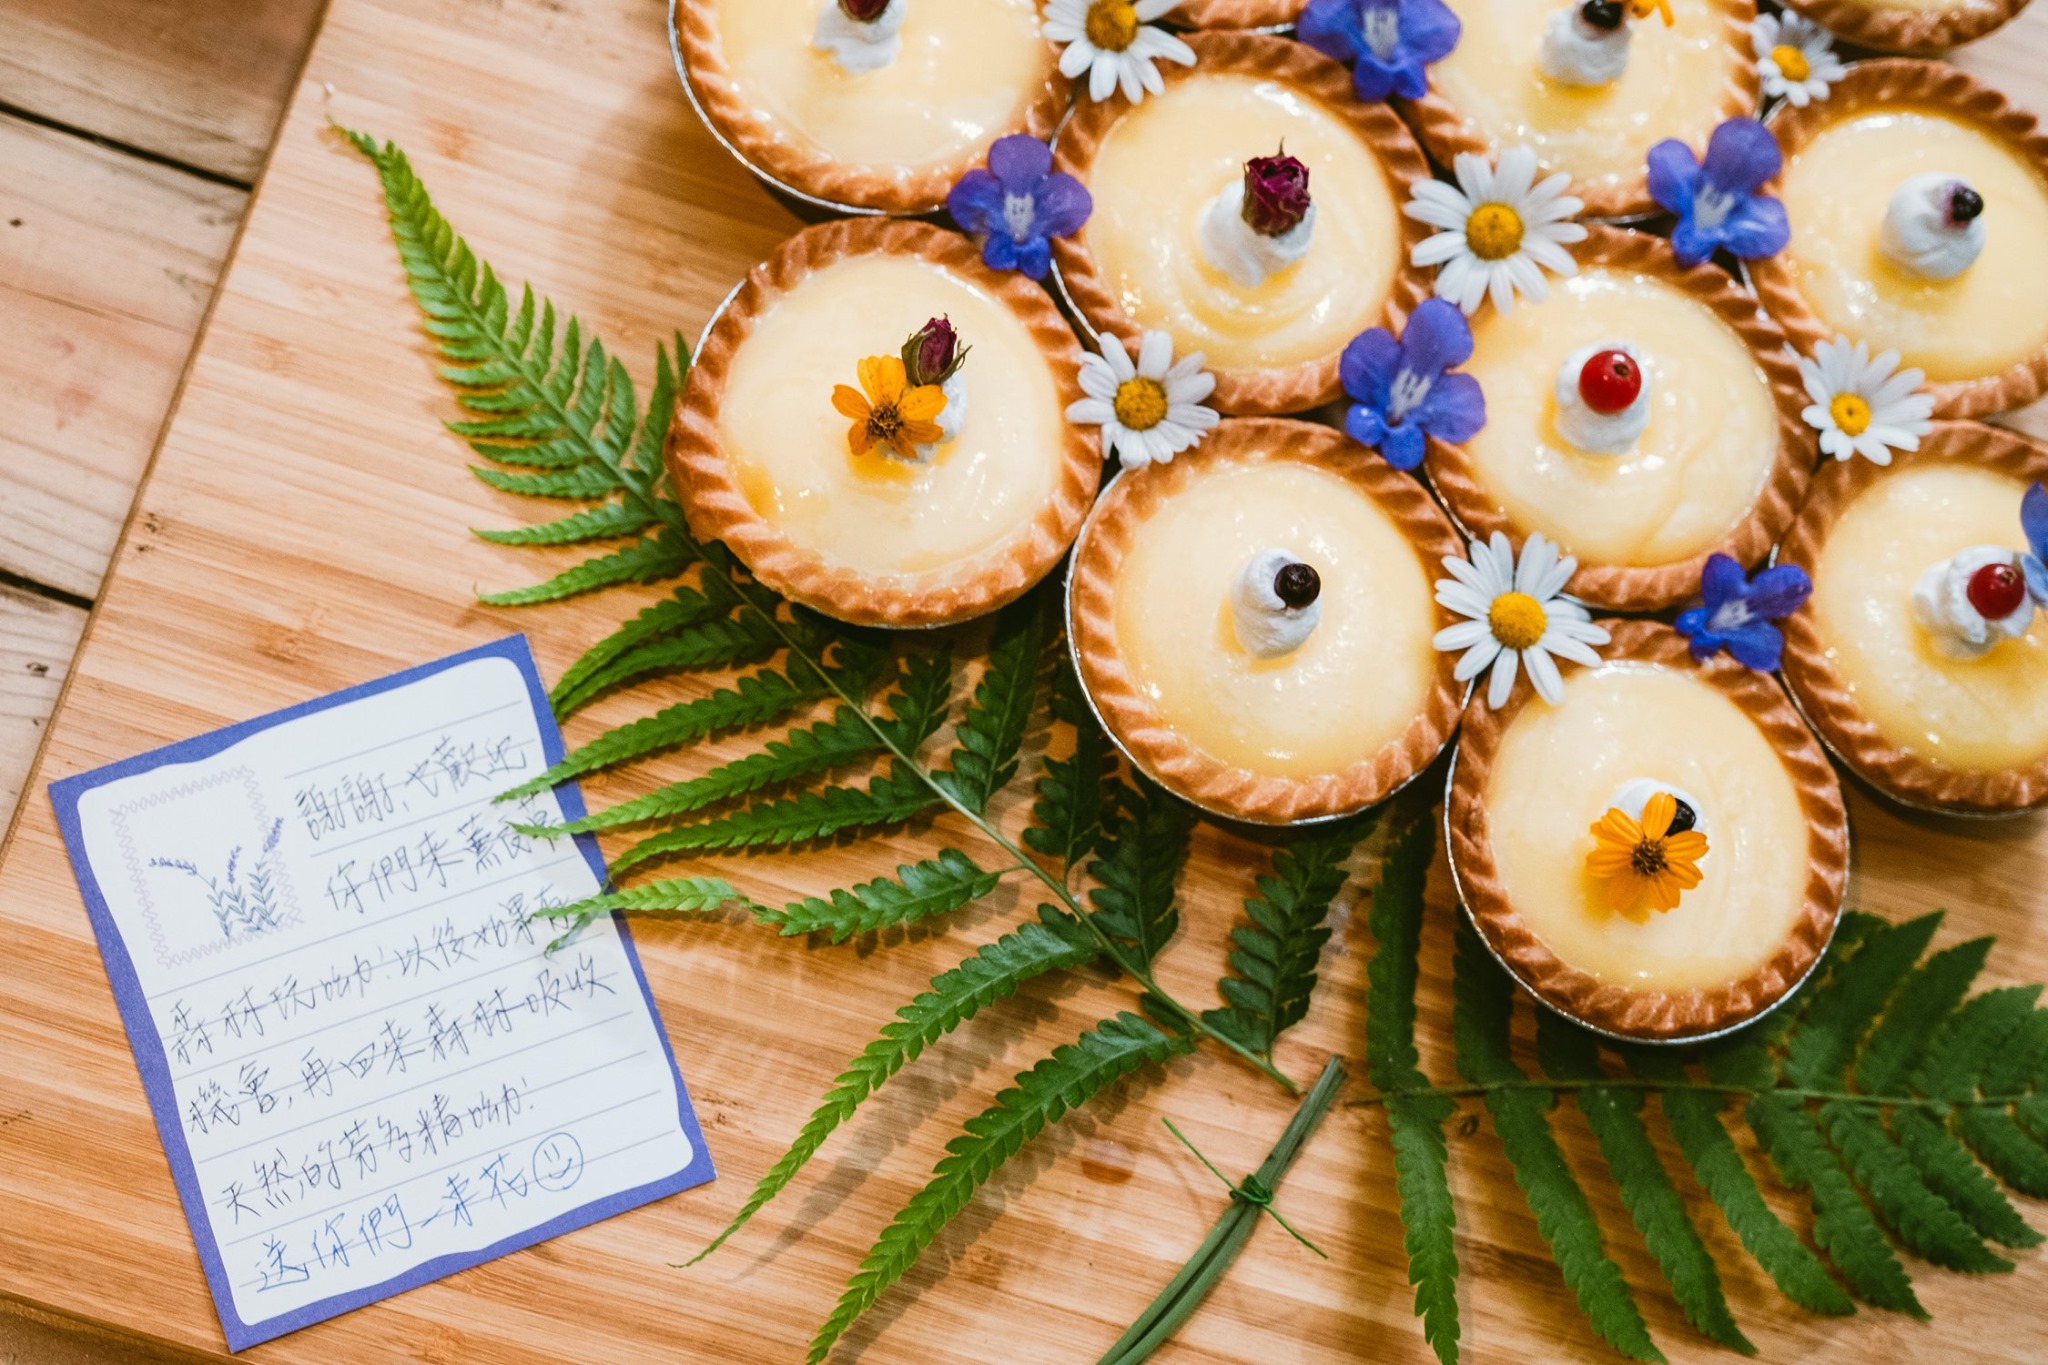 謝謝,也歡迎
你們來薰衣草
森林玩呦!以後如果有
機會,再回來森林吸收
天然的芬多精呦!
送你們一束花